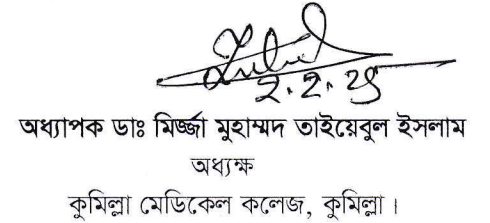 ২.২.২৫
অধ্যাপক ডাঃ মির্জ্জা মুহাম্মদ তাইয়েবুল ইসলাম
অধ্যক্ষ
কুমিল্লা মেডিকেল কলেজ, কুমিল্লা।